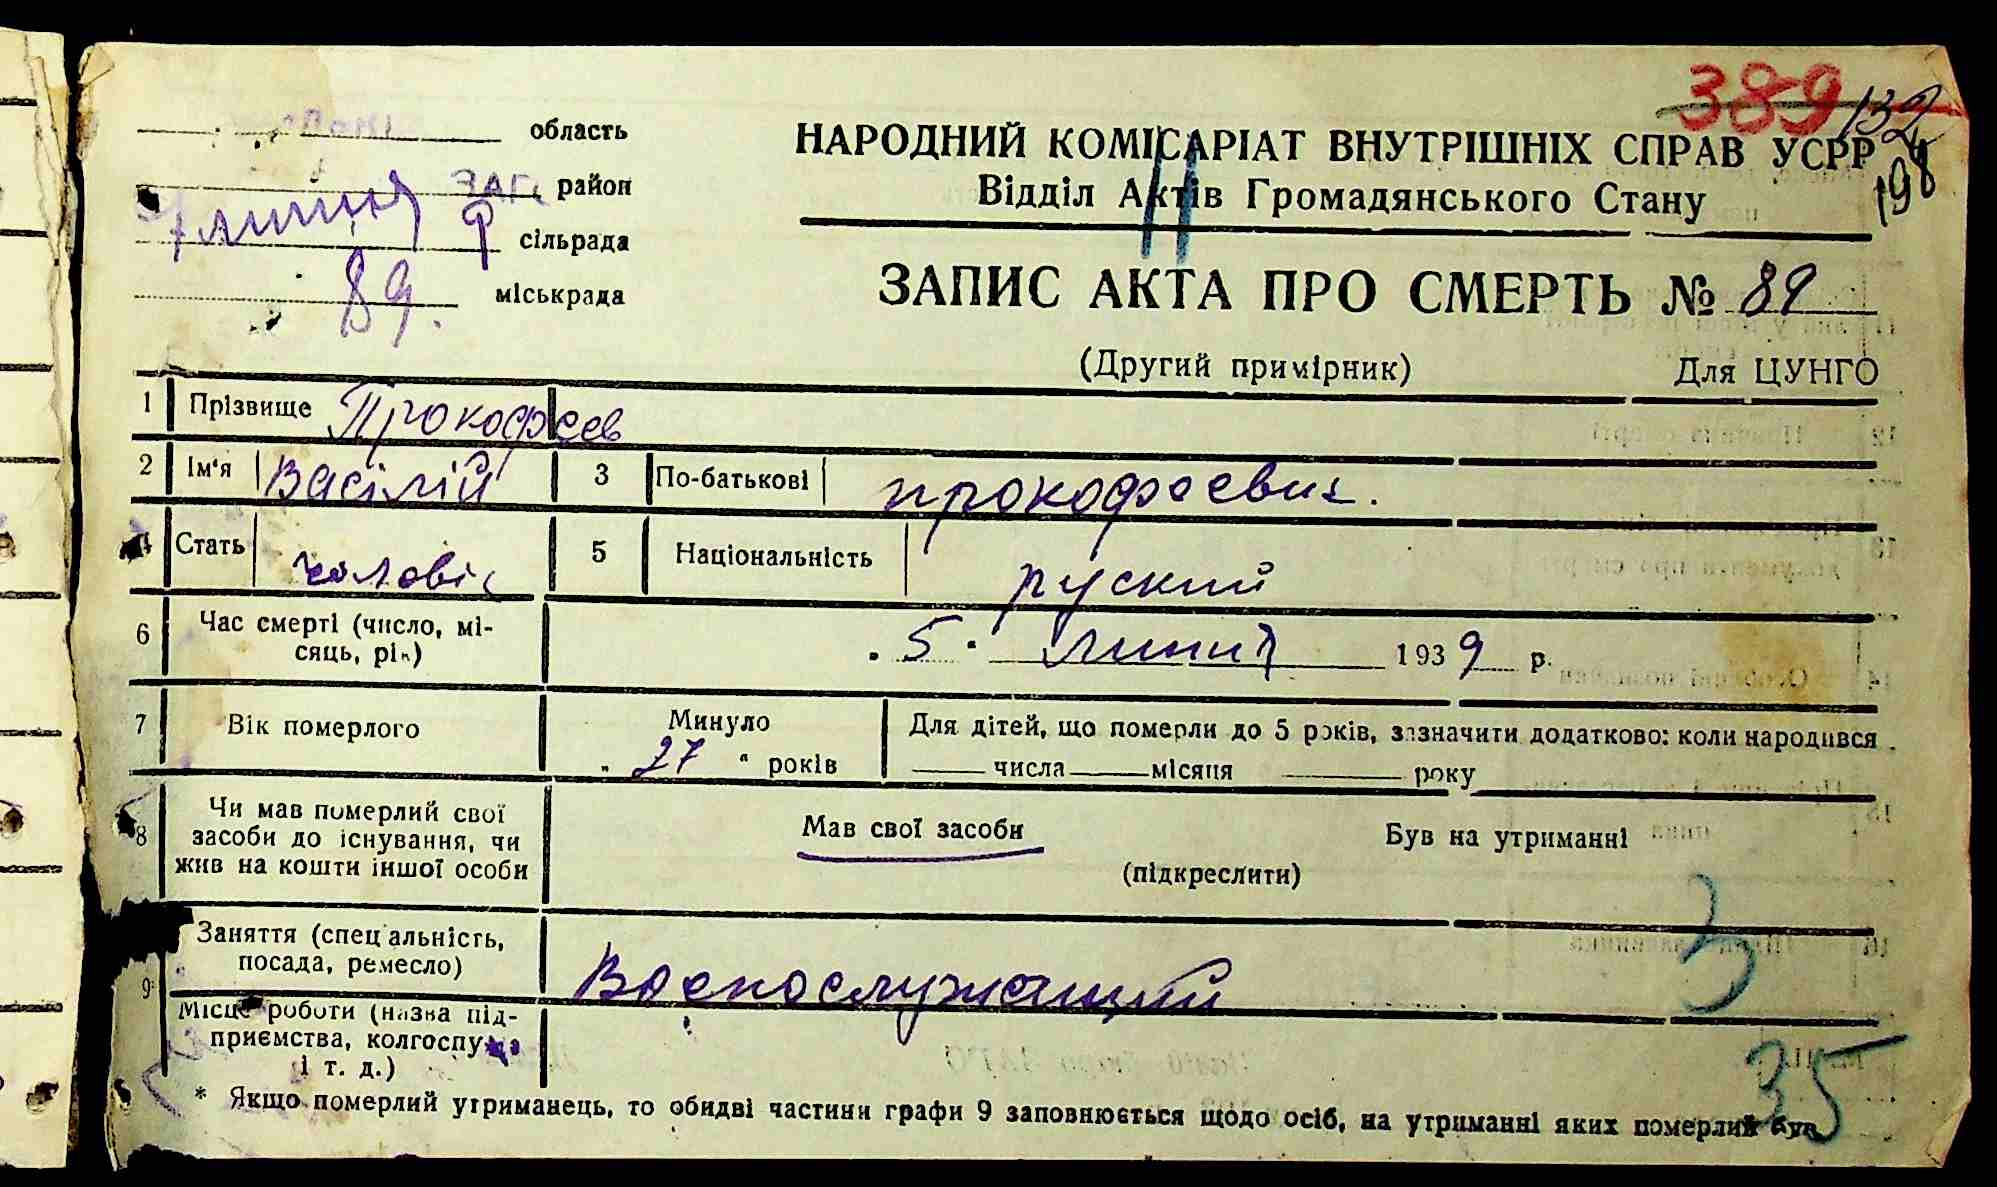 389 132
198
область
ЗАГС район
сільрада
89. міськрада
НАРОДНИЙ КОМІСАРІАТ ВНУТРІШНІХ СПРАВ УСРР
Відділ Актів Громадянського Стану
ЗАПИС АКТА ПРО СМЕРТЬ № 89
(Другий примірник) Для ЦУНГО
1 Прізвище Прокофьев
2 Ім'я Васілій 3 По-батькові прокофьевич.
4 Стать чоловік 5 Національність руский
6 Час смерті (число, мі-
сяць, рік)
5 липня 1939 р.
7 Вік померлого
Минуло
„ 27 “ років
Для дітей, що померли до 5 років, зазначити додатково: коли народився
числа місяця року
8 Чи мав померлий свої
засоби до існування, чи
жив на кошти іншої особи
Мав свої засоби Був на утриманні
(підкреслити)
3
9 Заняття (спеціальність,
посада, ремесло)
Военослужащий
Місце роботи (назва під-
приємства, колгоспу
і т. д.)
35
* Якщо померлий утриманець, то обидві частини графи 9 заповнюється щодо осіб, на утриманні яких померлий був